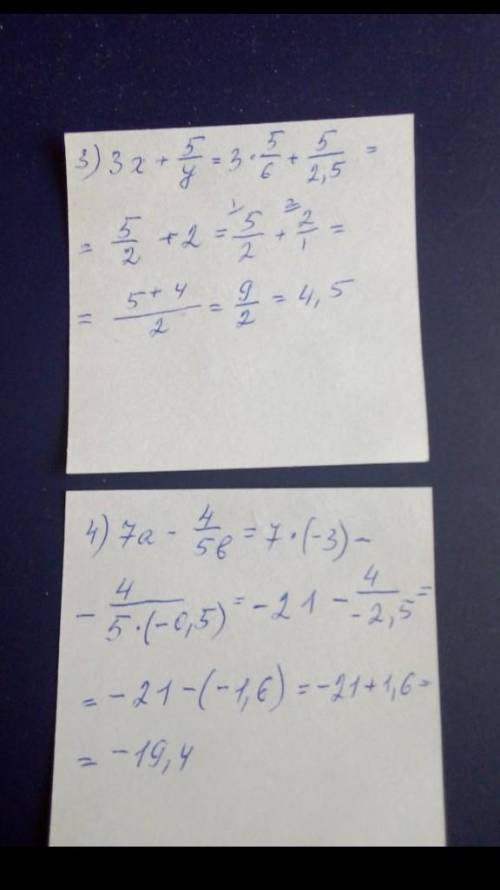 3) 3x + 5/y = 3 · 5/6 + 5/2,5 =
= 5/2 + 2 = ¹⁾5/2 + ²⁾2/1 =
= (5 + 4)/2 = 9/2 = 4,5
4) 7a - 4/5в = 7 · (-3) -
- 4/(5 · (-0,5)) = -21 - 4/-2,5 =
= -21 - (-1,6) = -21 + 1,6 =
= -19,4